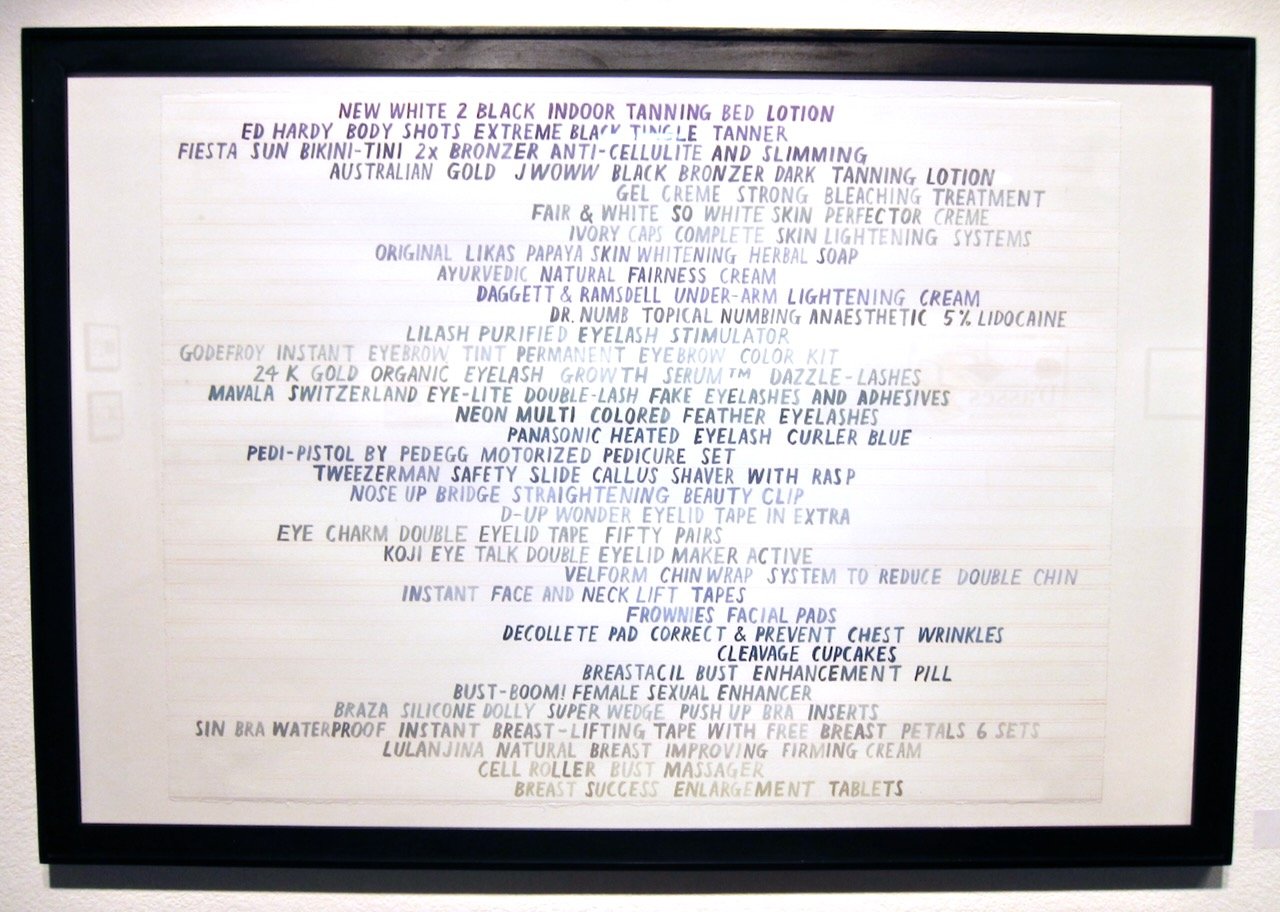 NEW WHITE 2 BLACK INDOOR TANNING BED LOTION
ED HARDY BODY SHOTS EXTREME BLACK TINGLE TANNER
FIESTA SUN BIKINI-TINI 2x BRONZER ANTI-CELLULITE AND SLIMMING
AUSTRALIAN GOLD JWOWW BLACK BRONZER DARK TANNING LOTION
GEL CREME STRONG BLEACHING TREATMENT
FAIR & WHITE SO WHITE SKIN PERFECTOR CREME
IVORY CAPS COMPLETE SKIN LIGHTENING SYSTEMS
ORIGINAL LIKAS PAPAYA SKIN WHITENING HERBAL SOAP
AYURVEDIC NATURAL FAIRNESS CREAM
DAGGETT & RAMSDELL UNDER-ARM LIGHTENING CREAM
DR. NUMB TOPICAL NUMBING ANAESTHETIC 5% LIDOCAINE
LILASH PURIFIED EYELASH STIMULATOR
GODEFROY INSTANT EYEBROW TINT PERMANENT EYEBROW COLOR KIT
24 K GOLD ORGANIC EYELASH GROWTH SERUM™ DAZZLE-LASHES
MAVALA SWITZERLAND EYE-LITE DOUBLE-LASH FAKE EYELASHES AND ADHESIVES
NEON MULTI COLORED FEATHER EYELASHES
PANASONIC HEATED EYELASH CURLER BLUE
PEDI-PISTOL BY PEDEGG MOTORIZED PEDICURE SET
TWEEZERMAN SAFETY SLIDE CALLUS SHAVER WITH RASP
NOSE UP BRIDGE STRAIGHTENING BEAUTY CLIP
D-UP WONDER EYELID TAPE IN EXTRA
EYE CHARM DOUBLE EYELID TAPE FIFTY PAIRS
KOJI EYE TALK DOUBLE EYELID MAKER ACTIVE
VELFORM CHIN WRAP SYSTEM TO REDUCE DOUBLE CHIN
INSTANT FACE AND NECK LIFT TAPES
FROWNIES FACIAL PADS
DECOLLETE PAD CORRECT & PREVENT CHEST WRINKLES
CLEAVAGE CUPCAKES
BREASTACIL BUST ENHANCEMENT PILL
BUST-BOOM! FEMALE SEXUAL ENHANCER
BRAZA SILICONE DOLLY SUPER WEDGE PUSH UP BRA INSERTS
SIN BRA WATERPROOF INSTANT BREAST-LIFTING TAPE WITH FREE BREAST PETALS 6 SETS
LULANJINA NATURAL BREAST IMPROVING FIRMING CREAM
CELL ROLLER BUST MASSAGER
BREAST SUCCESS ENLARGEMENT TABLETS